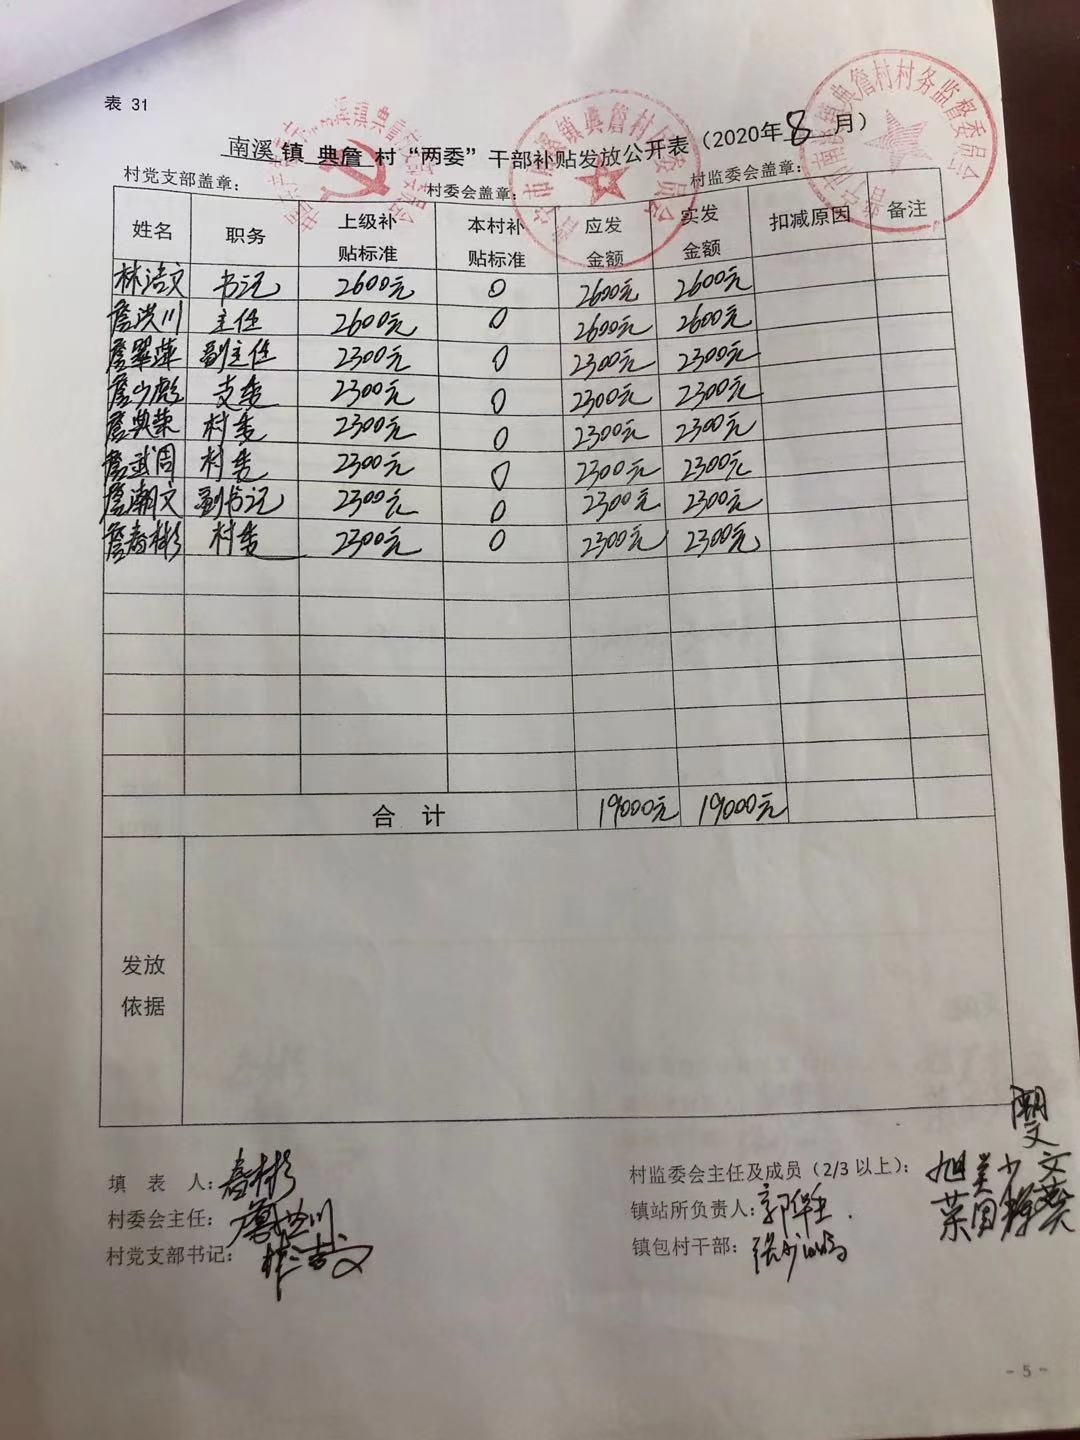 表 31
南溪 镇 典詹 村“两委”干部补贴发放公开表（2020年8月）
村党支部盖章： 村委会盖章： 村监委会盖章：
姓名 职务 上级补贴标准 本村补贴标准 应发金额 实发金额 扣减原因 备注
林洁文 书记 2600元 0 2600元 2600元
詹洪川 主任 2600元 0 2600元 2600元
詹翠萍 副主任 2300元 0 2300元 2300元
詹少彪 支委 2300元 0 2300元 2300元
詹典荣 村委 2300元 0 2300元 2300元
詹武周 村委 2300元 0 2300元 2300元
詹潮文 副书记 2300元 0 2300元 2300元
詹春彬 村委 2300元 0 2300元 2300元
合 计 19000元 19000元
发放依据
填 表 人：春彬
村委会主任：詹洪川
村党支部书记：林洁文
村监委会主任及成员（2/3 以上）：
镇站所负责人：
镇包村干部：
- 5 -